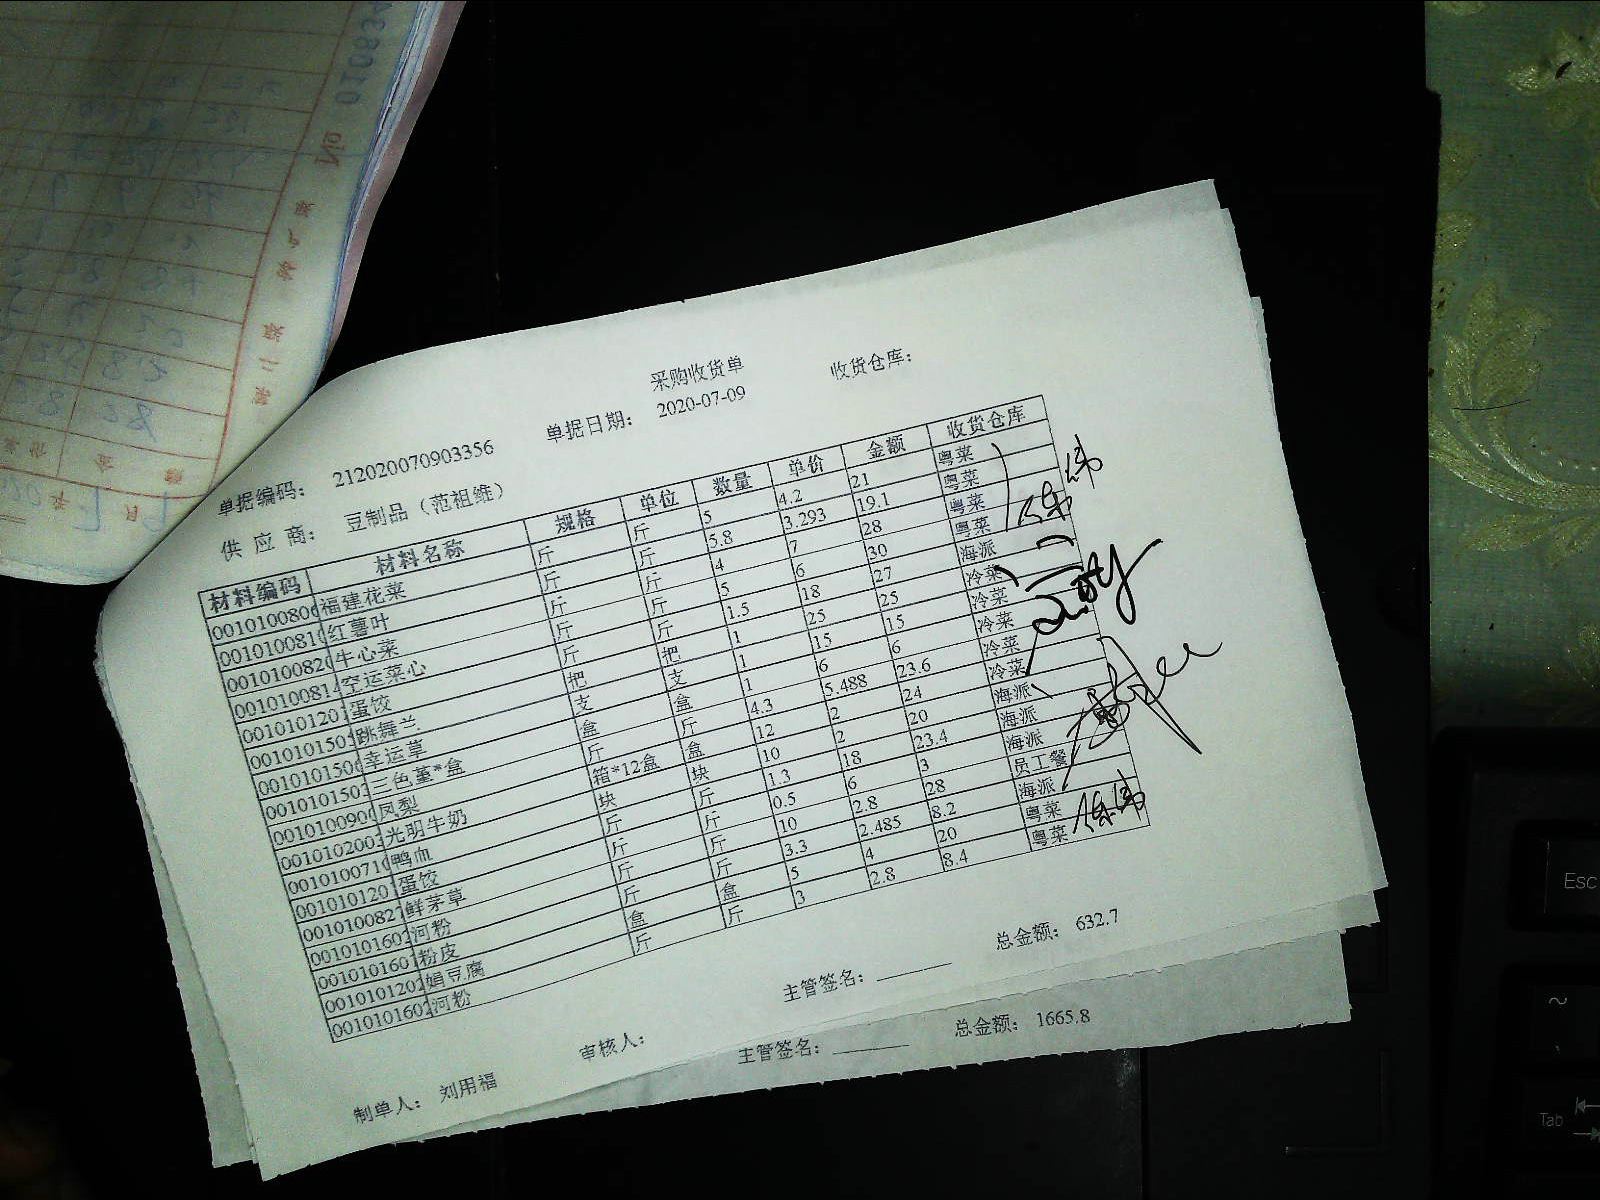 采购收货单
收货仓库：
单据编码： 212020070903356 单据日期： 2020-07-09
供 应 商： 豆制品（范祖维）
材料编码 材料名称 规格 单位 数量 单价 金额 收货仓库
0010100806 福建花菜 斤 斤 5 4.2 21 粤菜
001010081 红薯叶 斤 斤 5.8 3.293 19.1 粤菜
001010082 牛心菜 斤 斤 4 7 28 粤菜
001010081 空运菜心 斤 斤 5 6 30 粤菜
001010120 蛋饺 斤 斤 1.5 18 27 海派
001010150 跳舞兰 把 把 1 25 25 冷菜
001010150 幸运草 支 支 1 15 15 冷菜
001010150 三色堇*盒 盒 盒 1 6 6 冷菜
001010090 凤梨 斤 斤 4.3 5.488 23.6 冷菜
001010200 光明牛奶 箱*12盒 盒 12 2 24 冷菜
001010071 鸭血 块 块 10 2 20 海派
001010120 蛋饺 斤 斤 1.3 18 23.4 海派
001010082 鲜茅草 斤 斤 0.5 6 3 海派
001010160 河粉 斤 斤 10 2.8 28 员工餐
001010160 粉皮 斤 斤 3.3 2.485 8.2 海派
001010120 娟豆腐 盒 盒 5 4 20 粤菜
001010160 河粉 斤 斤 3 2.8 8.4 粤菜
制单人： 刘用福 审核人： 主管签名： 总金额： 632.7
主管签名： 总金额： 1665.8
Esc
~
Tab